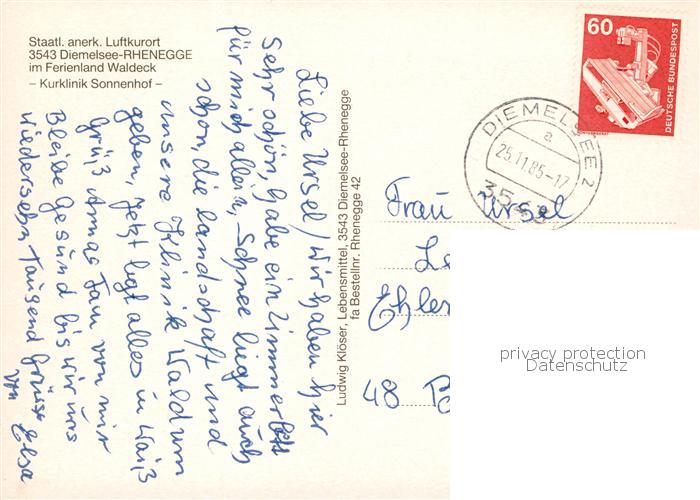 Staatl. anerk. Luftkurort
3543 Diemelsee-RHENEGGE
im Ferienland Waldeck
– Kurklinik Sonnenhof –
Liebe Ursel/wir haben hier
Sehr schön, habe ein Zimmer
für mich allein, Schnee liegt auch
schon, die Landschaft und
unsere Klinik Waldum
geben, jetzt ligt alles in Waiß
Grüß Armas Fam von mir
Bleibe Gesund bis wir uns
wiedersehn Tausend Grüße Elsa
von
Ludwig Klöser, Lebensmittel, 3543 Diemelsee-Rhenegge
fa Bestellnr. Rhenegge 42
60
DEUTSCHE BUNDESPOST
DIEMELSEE 2
a
25.11.85-17
3543
Frau Ursel
Le
Ehler
48
privacy protection
Datenschutz